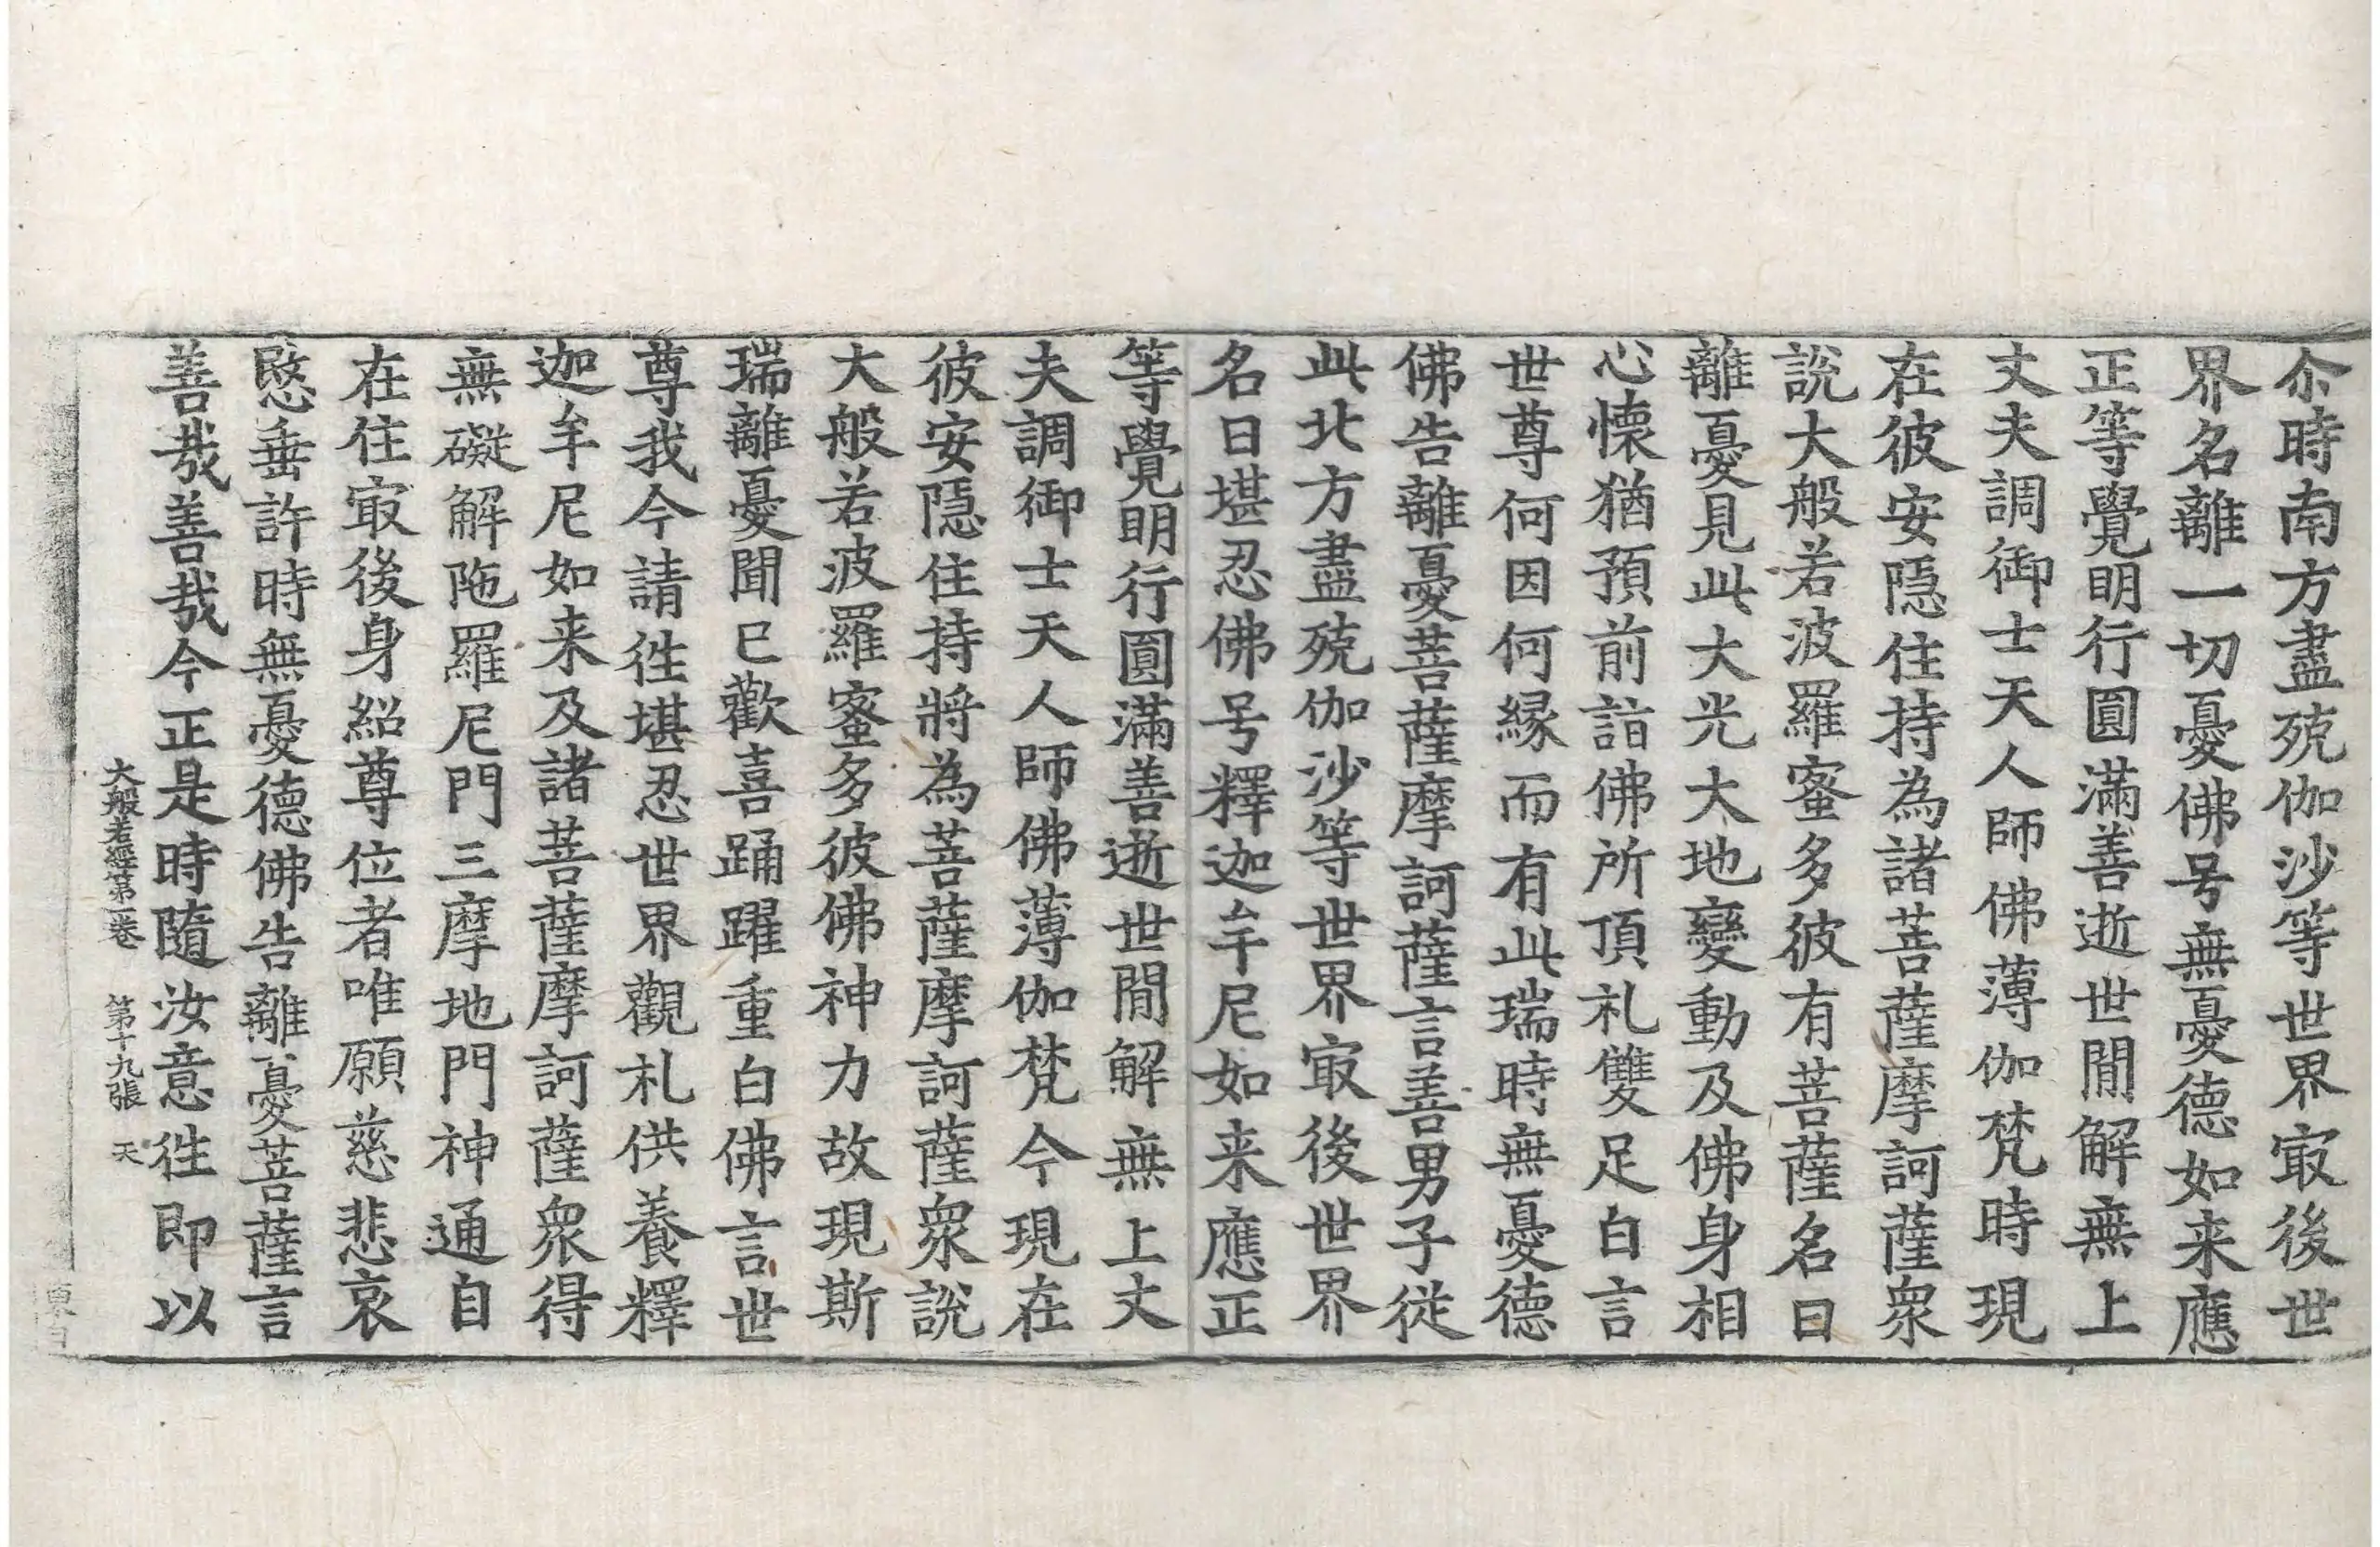 尒時南方盡殑伽沙等世界㝡後世
界名離一切憂佛号無憂德如来應
正等覺明行圓滿善逝世間解無上
丈夫調御士天人師佛薄伽梵時現
在彼安隱住持為諸菩薩摩訶薩衆
說大般若波羅蜜多彼有菩薩名曰
離憂見此大光大地變動及佛身相
心懷猶預前詣佛所頂礼雙足白言
世尊何因何緣而有此瑞時無憂德
佛告離憂菩薩摩訶薩言善男子從
此北方盡殑伽沙等世界㝡後世界
名曰堪忍佛号釋迦牟尼如来應正
等覺明行圓滿善逝世間解無上丈
夫調御士天人師佛薄伽梵今現在
彼安隱住持將為菩薩摩訶薩衆說
大般若波羅蜜多彼佛神力故現斯
瑞離憂聞已歡喜踊躍重白佛言世
尊我今請徃堪忍世界觀礼供養釋
迦牟尼如来及諸菩薩摩訶薩衆得
無礙解陁羅尼門三摩地門神通自
在住㝡後身紹尊位者唯願慈悲哀
愍垂許時無憂德佛告離憂菩薩言
善哉善哉今正是時隨汝意徃即以
大般若經第一卷 第十九張 天